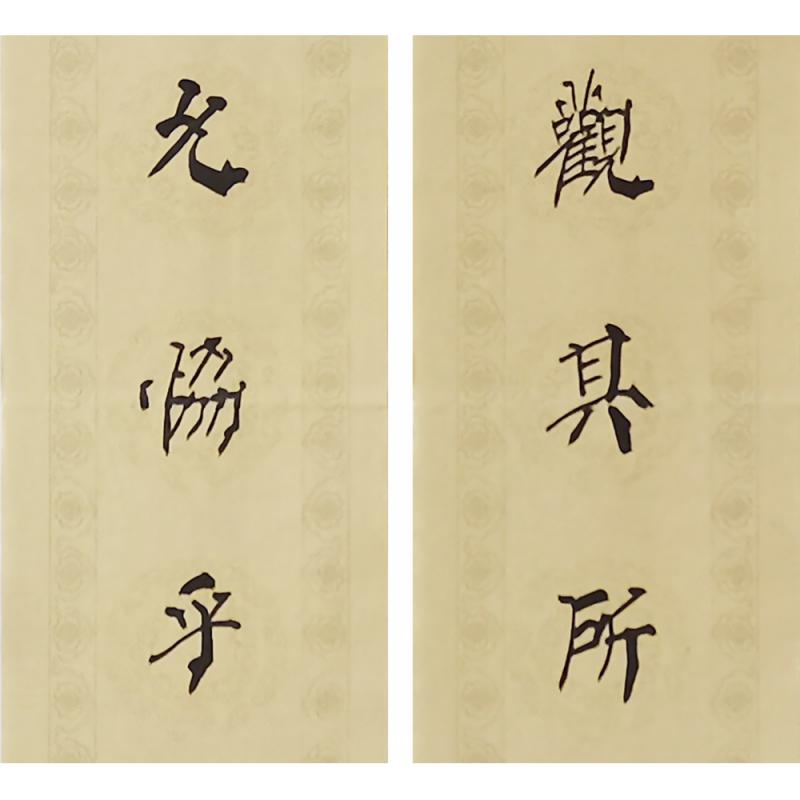 觀其所
允恊乎